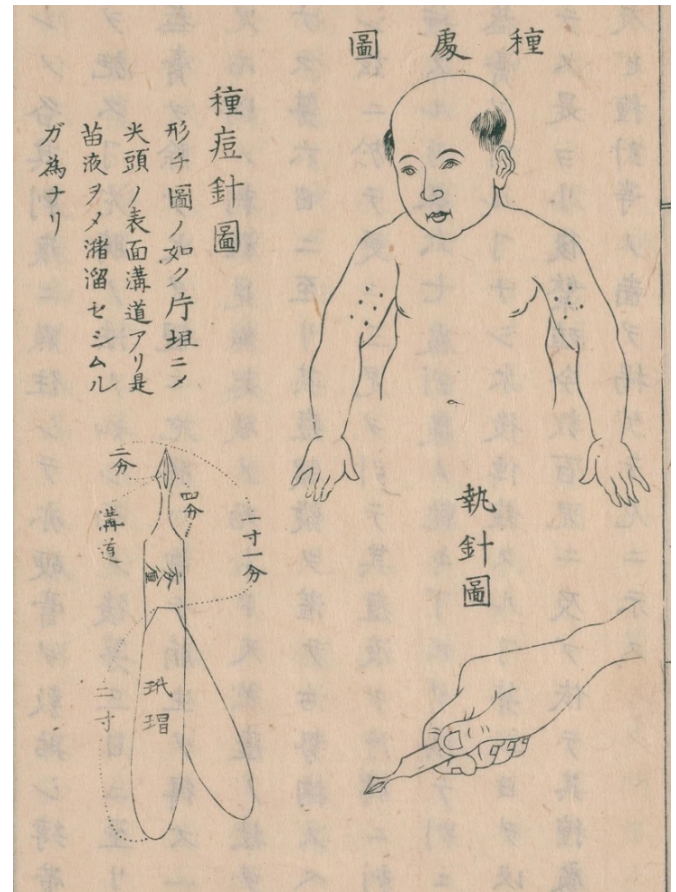 種處圖
種痘針圖
形チ圖ノ如ク片坦ニメ
尖頭ノ表面溝道アリ是
苗液ヲメ瀦溜セシムル
ガ為ナリ
執針圖
二分
四分
一寸一分
溝道
二寸
玳瑁